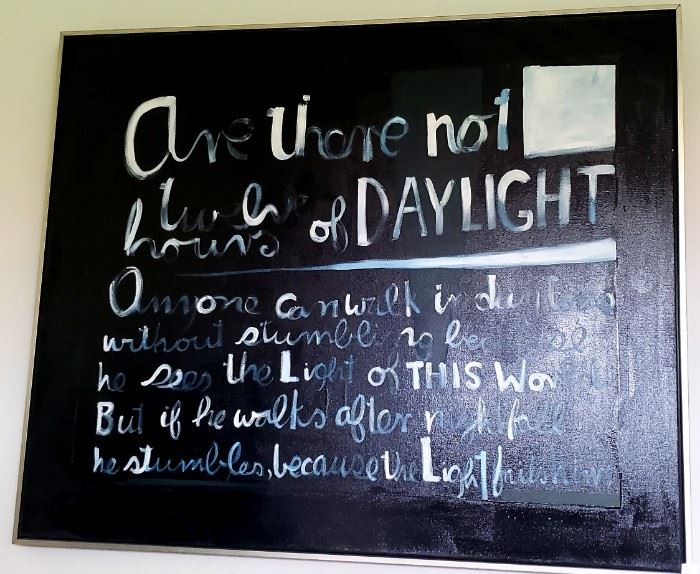 Are there not
twelve
hours of DAYLIGHT
Anyone can walk in daytime
without stumbling because
he sees the Light of THIS World
But if he walks after nightfall
he stumbles, because the Light fails him